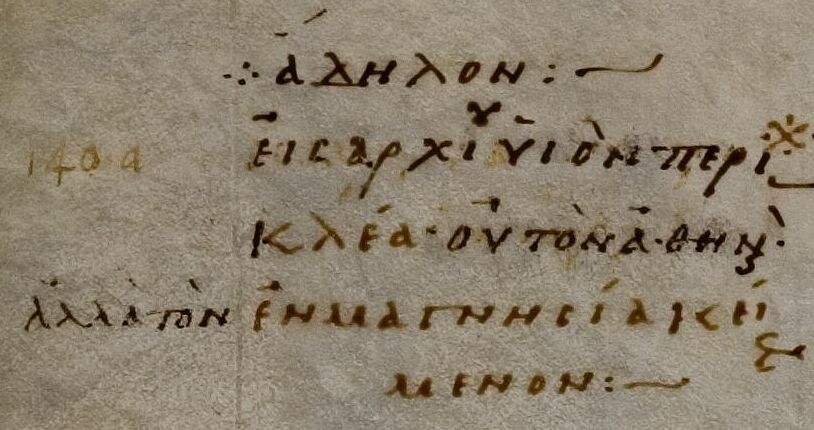 ⁘ ἄδηλον :—
εἰς ἀρχίυ υἱὸν περι
κλέα· οὐ τὸν ἀθην·
ἀλλὰ τὸν ἐν μαγνησίᾳ κεί
μενον :—